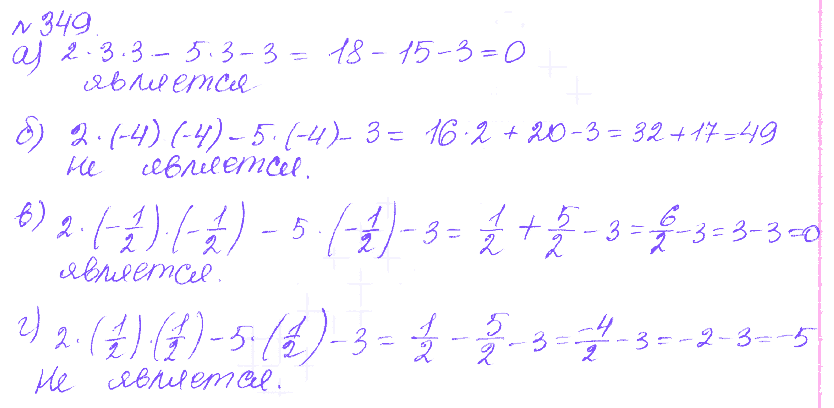 № 349.
а) 2·3·3 – 5·3 – 3 = 18 – 15 – 3 = 0
является
б) 2·(-4)(-4) – 5·(-4) – 3 = 16·2 + 20 – 3 = 32 + 17 = 49
Не является.
в) 2·(-1/2)·(-1/2) – 5·(-1/2) – 3 = 1/2 + 5/2 – 3 = 6/2 – 3 = 3 – 3 = 0
является.
г) 2·(1/2)·(1/2) – 5·(1/2) – 3 = 1/2 – 5/2 – 3 = -4/2 – 3 = -2 – 3 = -5
Не является.